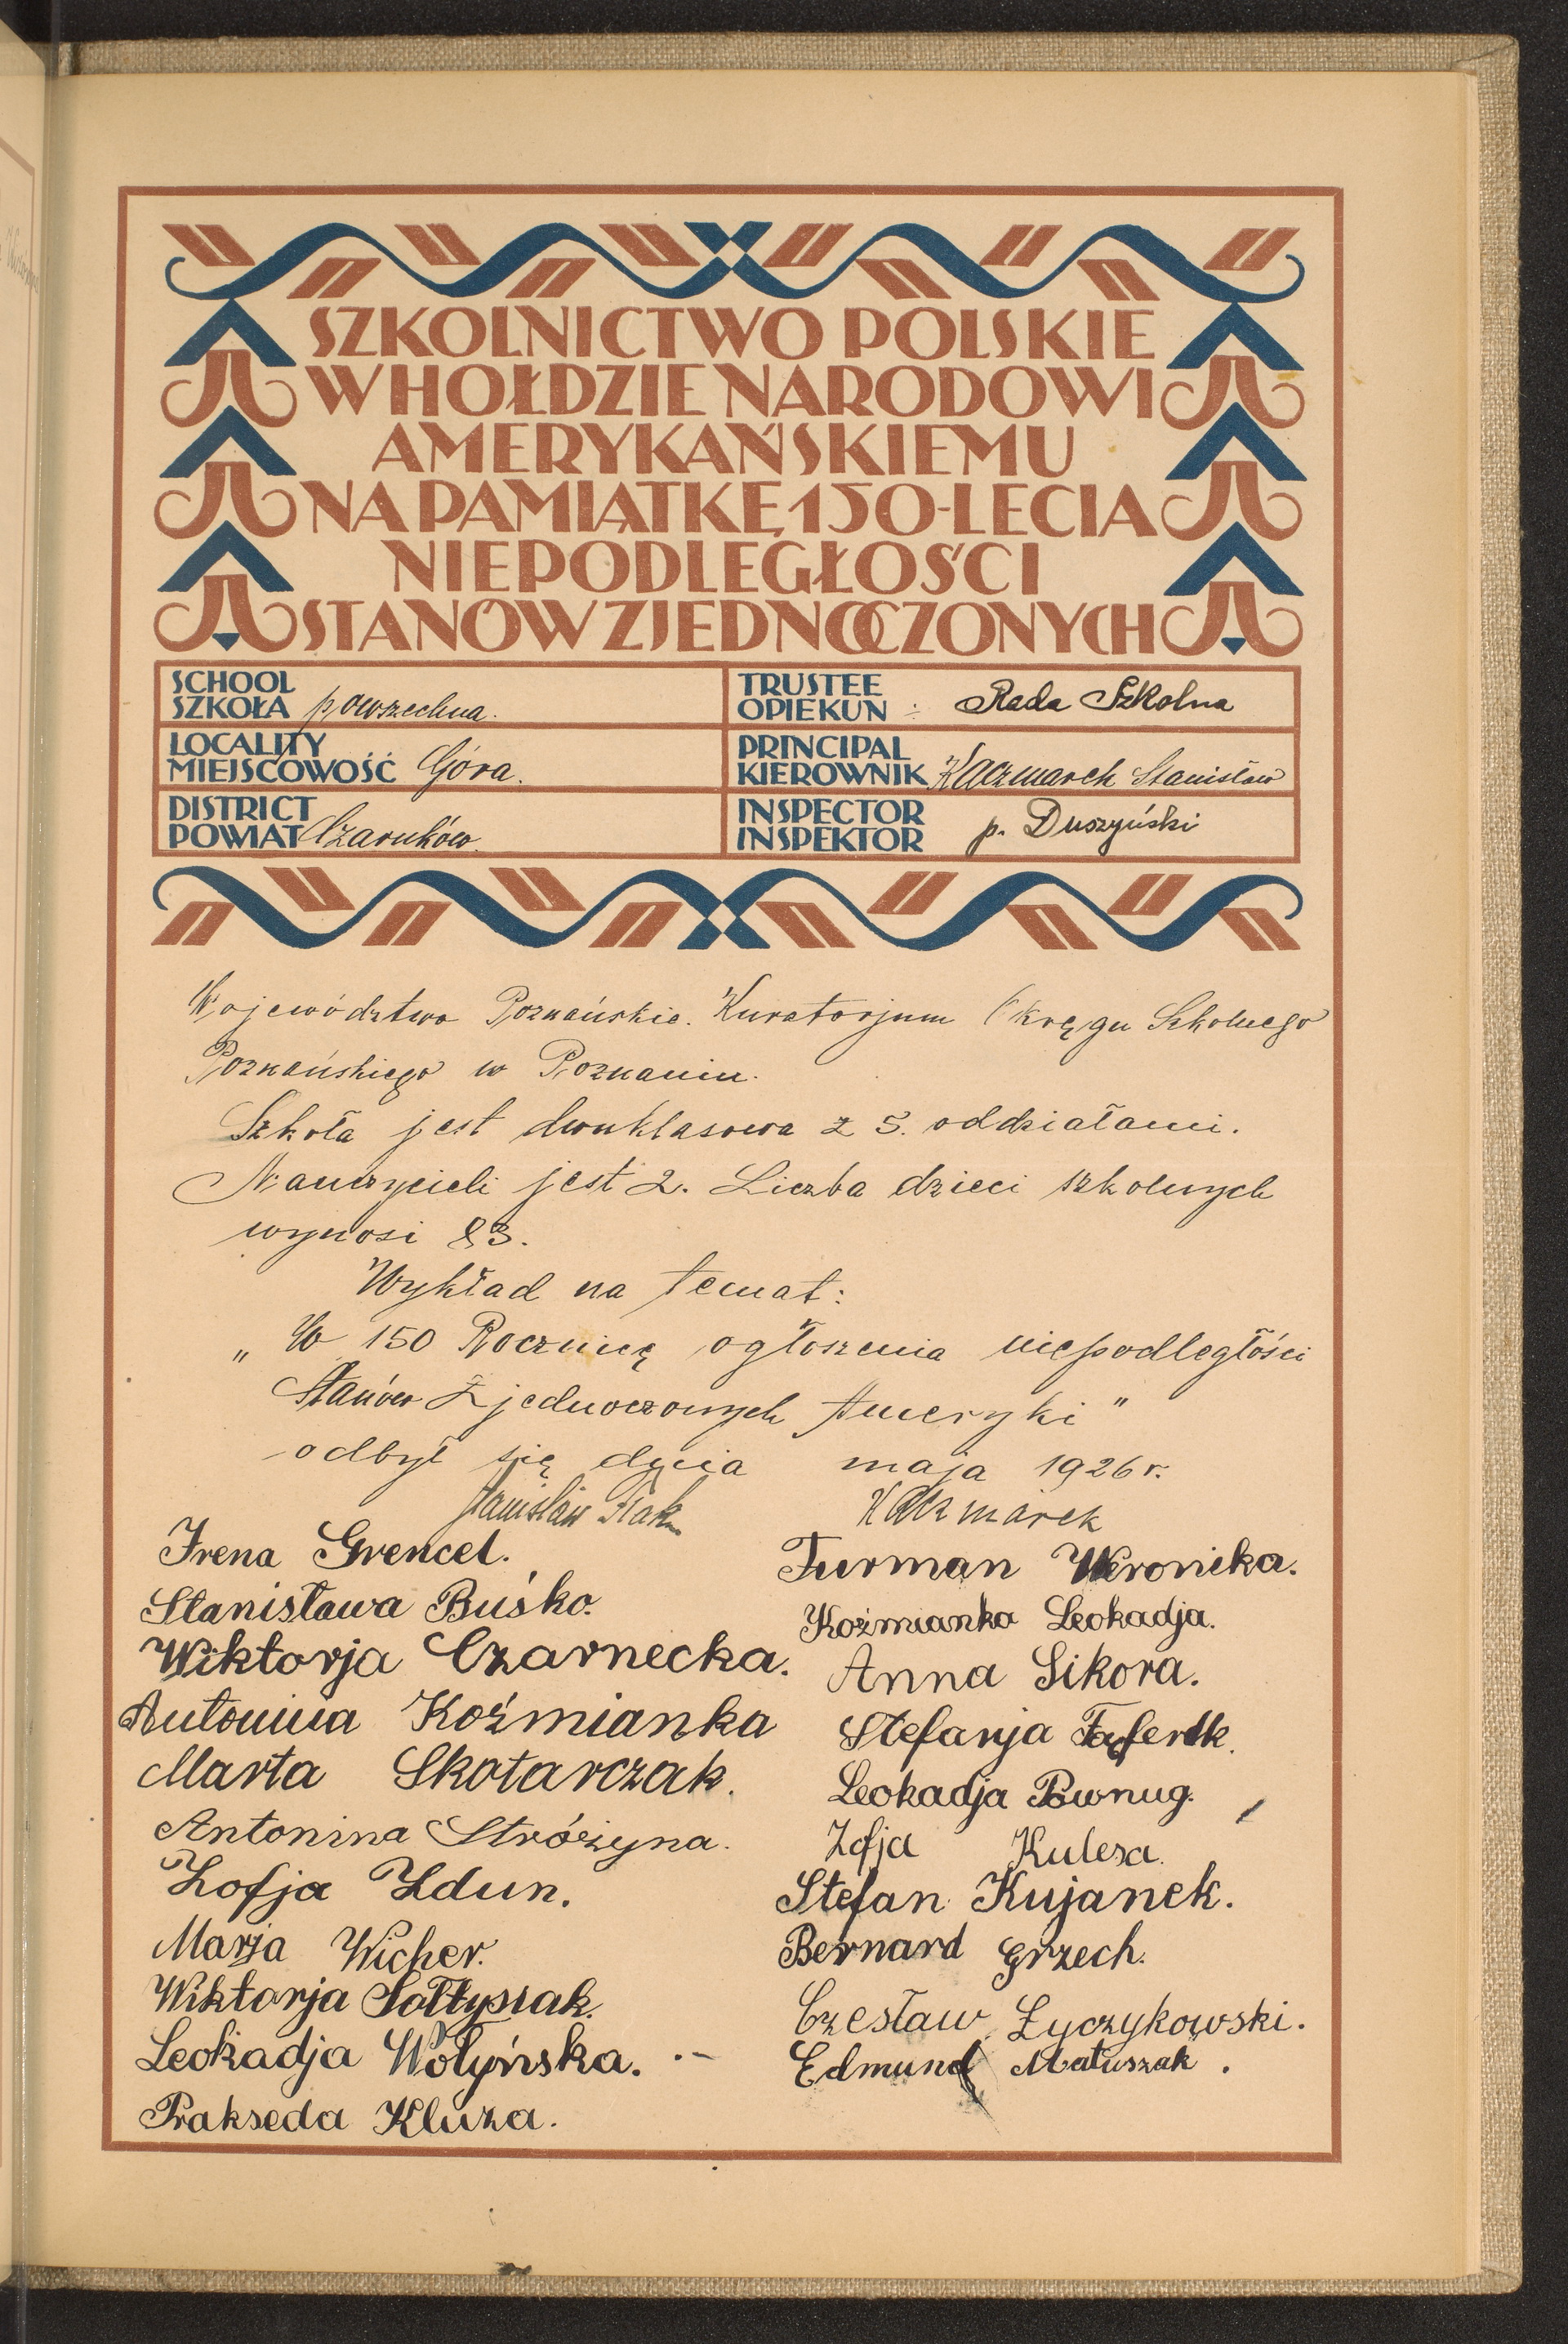 SZKOLNICTWO POLSKIE
W HOŁDZIE NARODOWI
AMERYKAŃSKIEMU
NA PAMIĄTKĘ 150-LECIA
NIEPODLEGŁOŚCI
STANÓW ZJEDNOCZONYCH
SCHOOL
SZKOŁA powszechna.
TRUSTEE
OPIEKUN : Rada Szkolna
LOCALITY
MIEJSCOWOŚĆ Góra.
PRINCIPAL
KIEROWNIK Kaczmarek Stanisław
DISTRICT
POWIAT Czarnków.
INSPECTOR
INSPEKTOR p. Duszyński
Województwo Poznańskie. Kuratorjum Okręgu Szkolnego
Poznańskiego w Poznaniu.
Szkoła jest dwuklasowa z 5. oddziałami.
Nauczycieli jest 2. Liczba dzieci szkolnych
wynosi 83.
Wykład na temat:
„W 150 Rocznicę ogłoszenia niepodległości
Stanów Zjednoczonych Ameryki"
odbył się dnia maja 1926 r.
Stanisław Kaczmarek
Irena Grencel.
Stanisława Buśko.
Wiktorja Czarnecka.
Antonina Koźmianka
Marta Skotarczak.
Antonina Stróżyna.
Zofja Zdun.
Marja Wicher.
Wiktorja Sołtysiak.
Leokadja Wołyńska.
Prakseda Kluza.
Furman Weronika.
Koźmianka Leokadja.
Anna Sikora.
Stefanja
Leokadja Pownug.
Zofja Kulesa.
Stefan Kujanek.
Bernard Grzech.
Czesław Łyczykowski.
Edmund Matuszak.